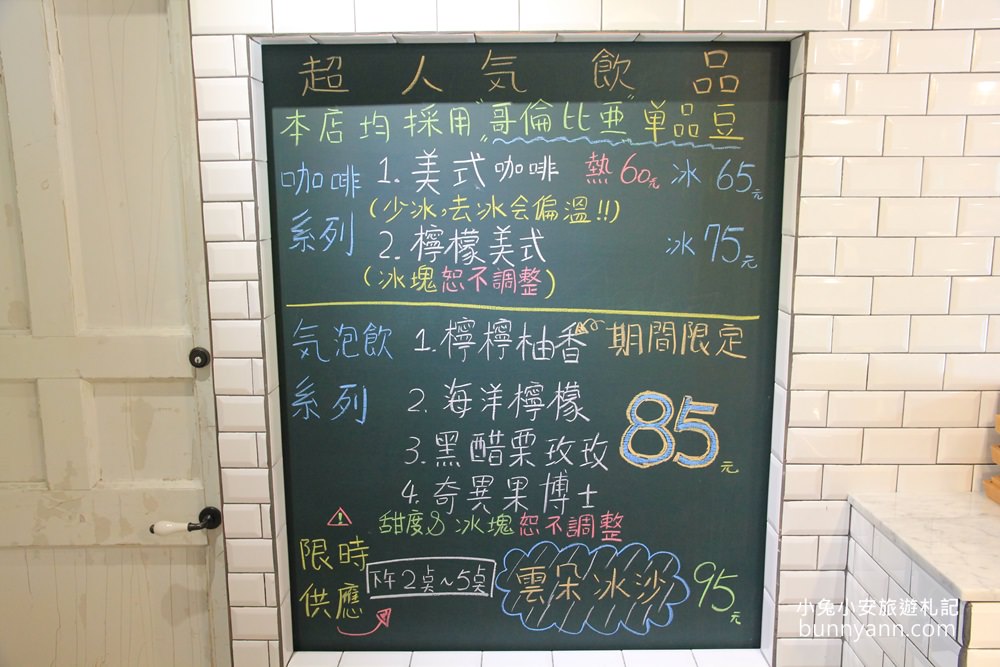 超人気飲品
本店均採用"哥倫比亜"单品豆
咖啡系列
1. 美式咖啡 熱60元 冰65元
(少冰,去冰会偏溫!!)
2. 檸檬美式 冰75元
(冰塊恕不調整)
気泡飲系列
1. 檸檸柚香 期間限定
2. 海洋檸檬
3. 黑醋栗玫玫
4. 奇異果博士
85元
甜度&冰塊恕不調整
限時供應
下午2点~5点
雲朵冰沙 95元
小兔小安旅遊札記
bunnyann.com